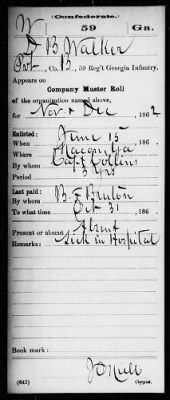 (Confederate.)
W 59 Ga.
D B Walker
Pvt, Co. B, 59 Reg't Georgia Infantry.
Appears on
Company Muster Roll
of the organization named above,
for Nov & Dec, 1862
Enlisted:
When June 15, 186
Where Macon Ga
By whom Capt Collins
Period 3 yrs
Last paid:
By whom B. F. Bruton
To what time Oct 31, 186
Present or absent Absent
Remarks: Sick in Hospital
Book mark:
(642) Copyist.